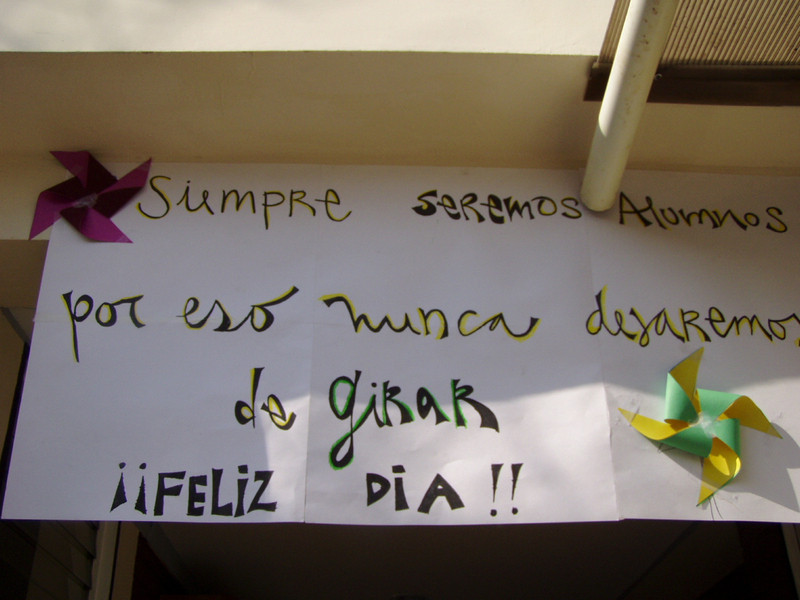 Siempre seremos Alumnos
por eso nunca dejaremos
de girar
¡¡FELIZ DIA!!